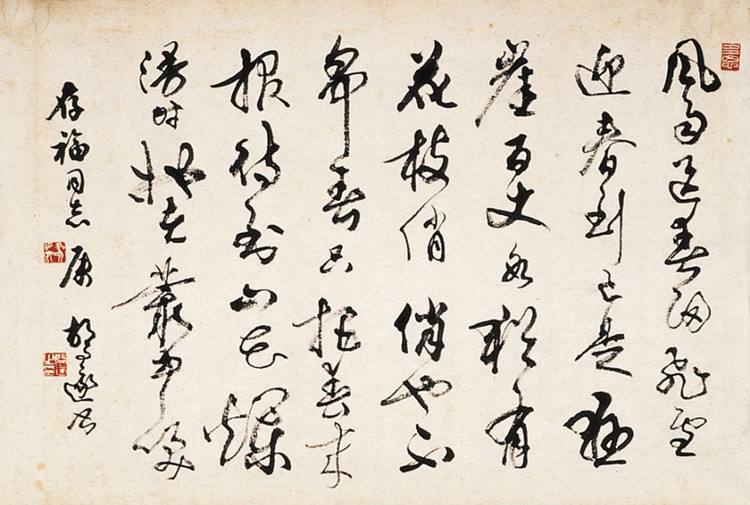 風雨送春归飛雪
迎春到已是懸
崖百丈冰猶有
花枝俏俏也不
争春只把春来
报待到山花爛
漫时她在叢中笑
存福同志属